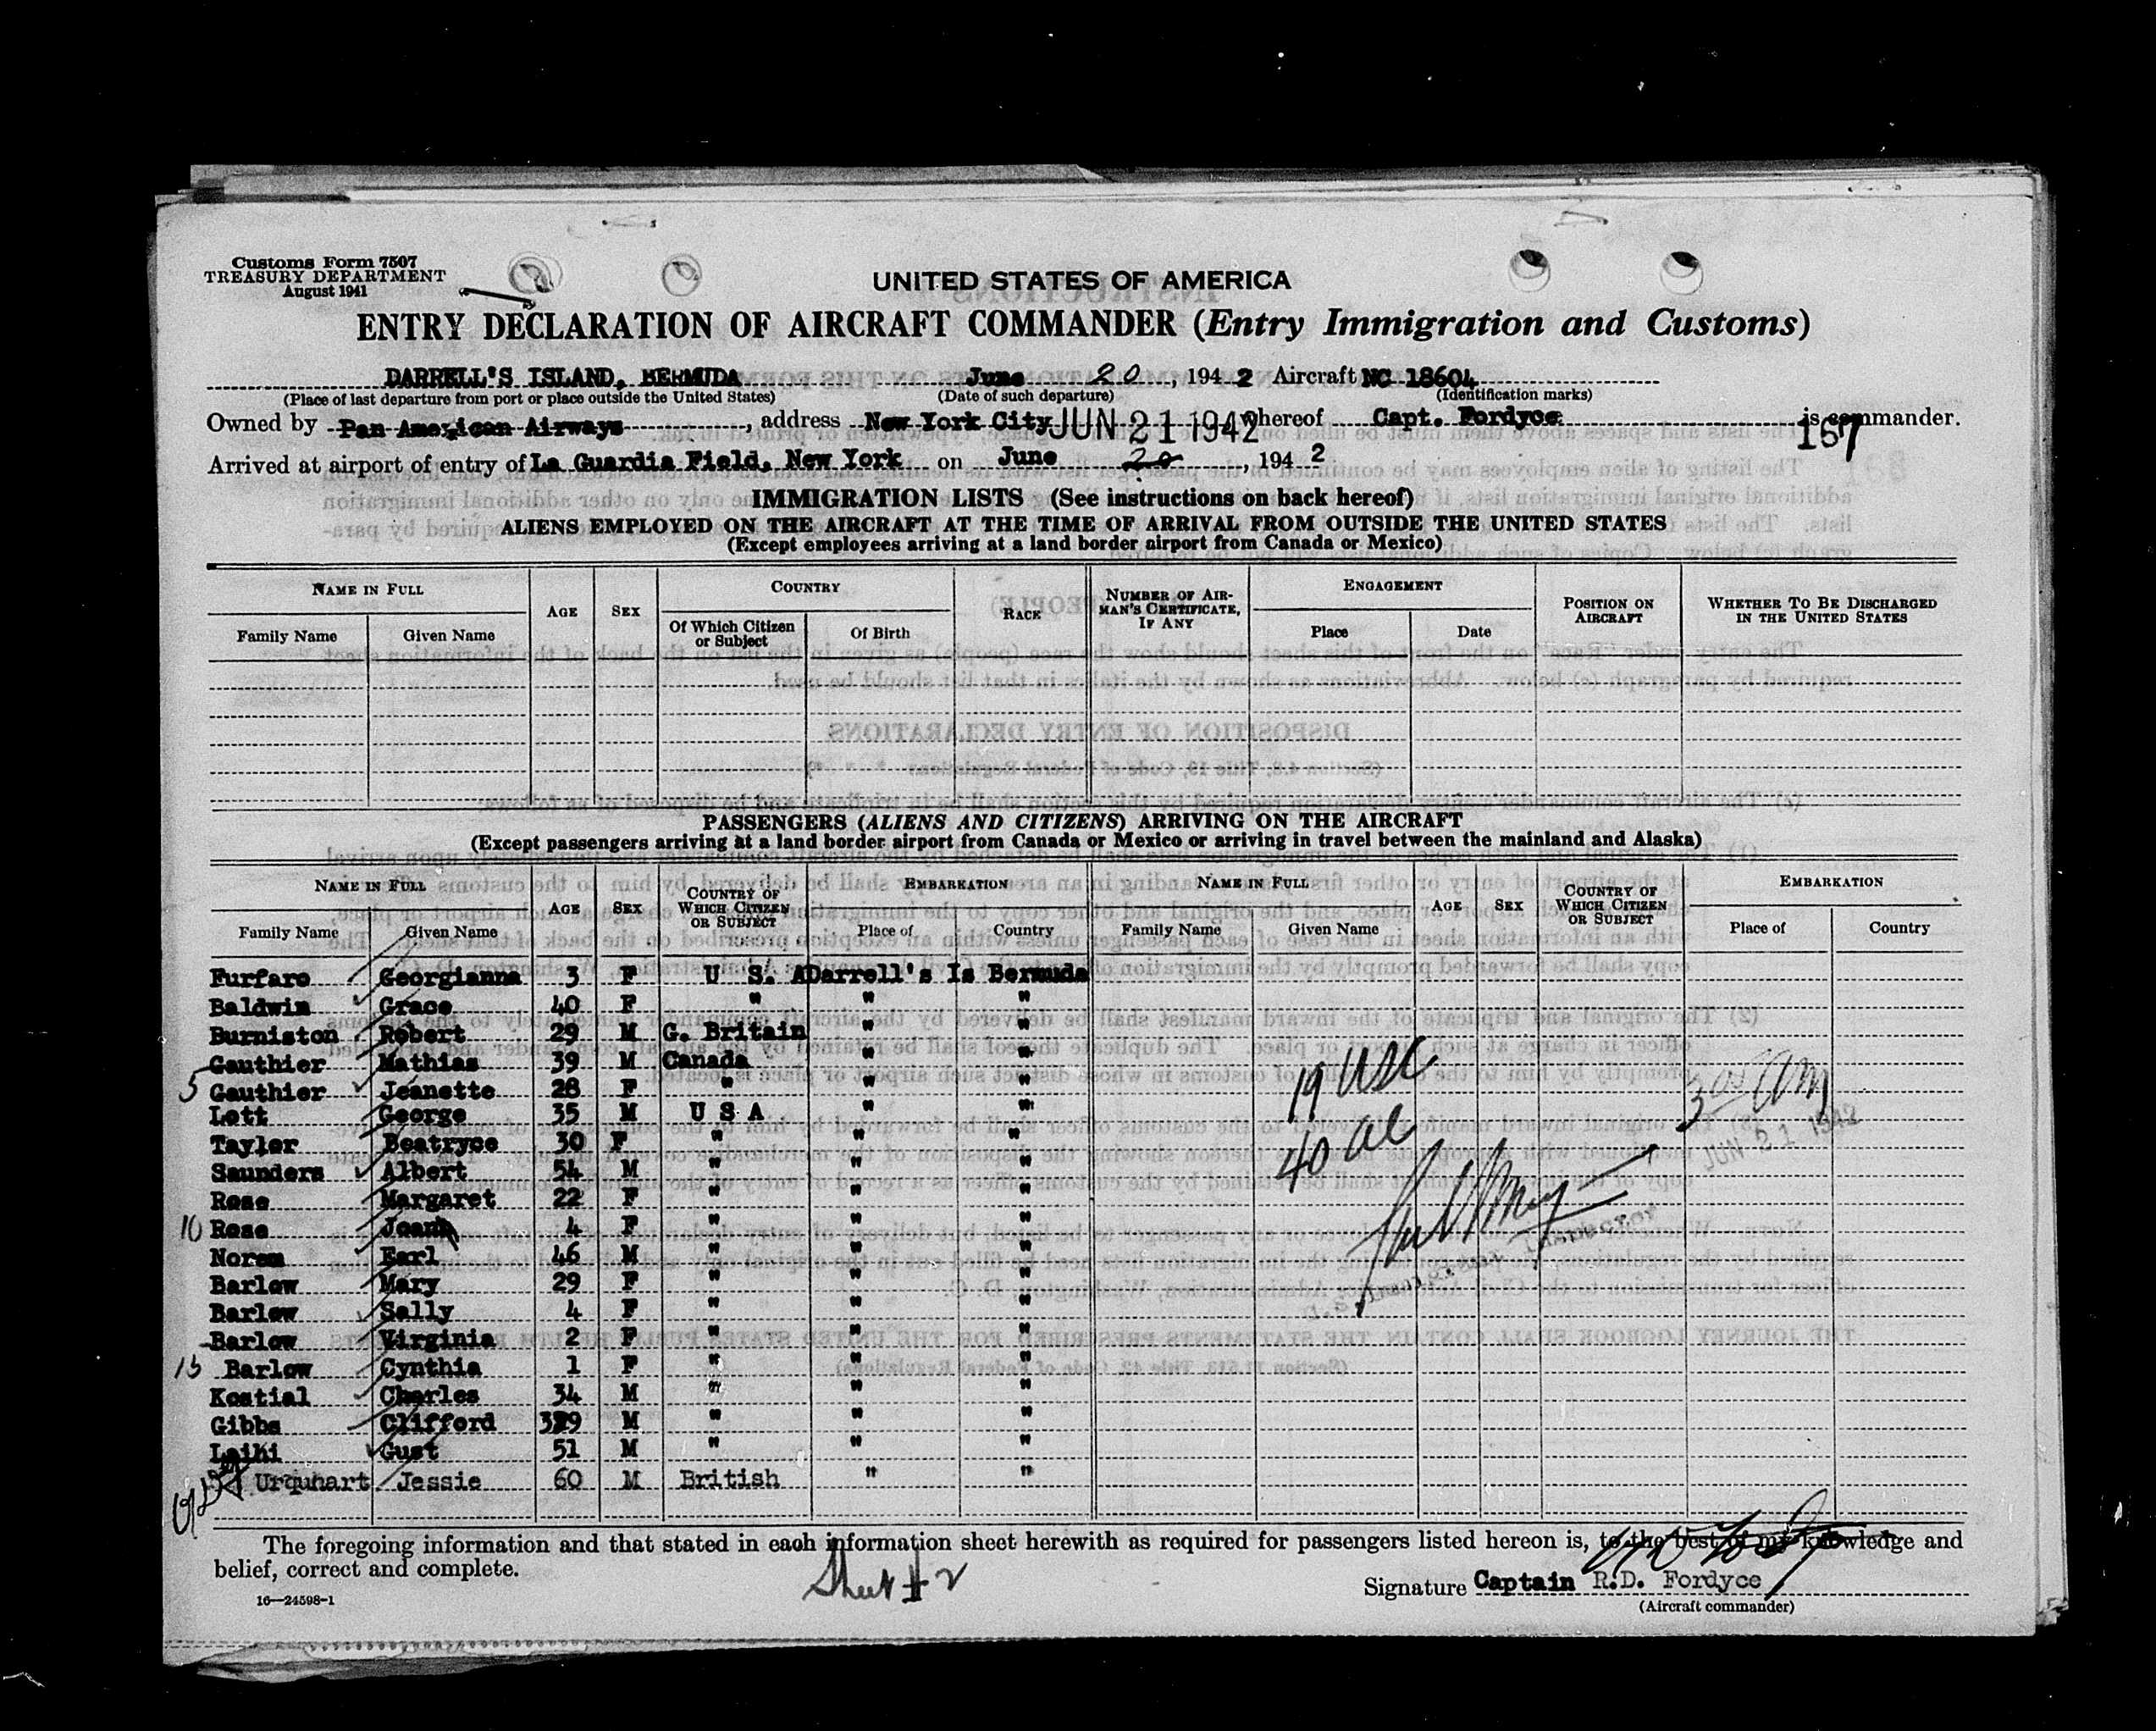 Customs Form 7507
TREASURY DEPARTMENT
August 1941
UNITED STATES OF AMERICA
ENTRY DECLARATION OF AIRCRAFT COMMANDER (Entry Immigration and Customs)
DARRELL'S ISLAND, BERMUDA June 20, 1942 Aircraft NC 18604
(Place of last departure from port or place outside the United States) (Date of such departure) (Identification marks)
Owned by Pan American Airways, address New York City JUN 21 1942 whereof Capt. Fordyce is commander.
167
Arrived at airport of entry of La Guardia Field, New York on June 20, 1942
IMMIGRATION LISTS (See instructions on back hereof)
ALIENS EMPLOYED ON THE AIRCRAFT AT THE TIME OF ARRIVAL FROM OUTSIDE THE UNITED STATES
(Except employees arriving at a land border airport from Canada or Mexico)
NAME IN FULL AGE SEX COUNTRY RACE NUMBER OF AIRMAN'S CERTIFICATE, IF ANY ENGAGEMENT POSITION ON AIRCRAFT WHETHER TO BE DISCHARGED IN THE UNITED STATES
Family Name Given Name Of Which Citizen or Subject Of Birth Place Date
PASSENGERS (ALIENS AND CITIZENS) ARRIVING ON THE AIRCRAFT
(Except passengers arriving at a land border airport from Canada or Mexico or arriving in travel between the mainland and Alaska)
NAME IN FULL AGE SEX COUNTRY OF WHICH CITIZEN OR SUBJECT EMBARKATION NAME IN FULL AGE SEX COUNTRY OF WHICH CITIZEN OR SUBJECT EMBARKATION
Family Name Given Name Place of Country Family Name Given Name Place of Country
Furfaro Georgianna 3 F U S. A Darrell's Is Bermuda
Baldwin Grace 40 F " " "
Burniston Robert 29 M G. Britain " "
Gauthier Mathias 39 M Canada " "
5 Gauthier Jeanette 28 F " " "
Lott George 35 M U S A " "
Tayler Beatryce 30 F " " "
Saunders Albert 54 M " " "
Rose Margaret 22 F " " "
10 Rose Joann 4 F " " "
Norem Earl 46 M " " "
Barlow Mary 29 F " " "
Barlow Sally 4 F " " "
Barlow Virginia 2 F " " "
15 Barlow Cynthia 1 F " " "
Kostial Charles 34 M " " "
Gibbs Clifford 39 M " " "
Laihi Gust 51 M " " "
Urquhart Jessie 60 M British " "
19 USC
40 al
JUN 21 1942
The foregoing information and that stated in each information sheet herewith as required for passengers listed hereon is, to the best of my knowledge and
belief, correct and complete.
Sheet #2
Signature Captain R.D. Fordyce
(Aircraft commander)
16—24598-1